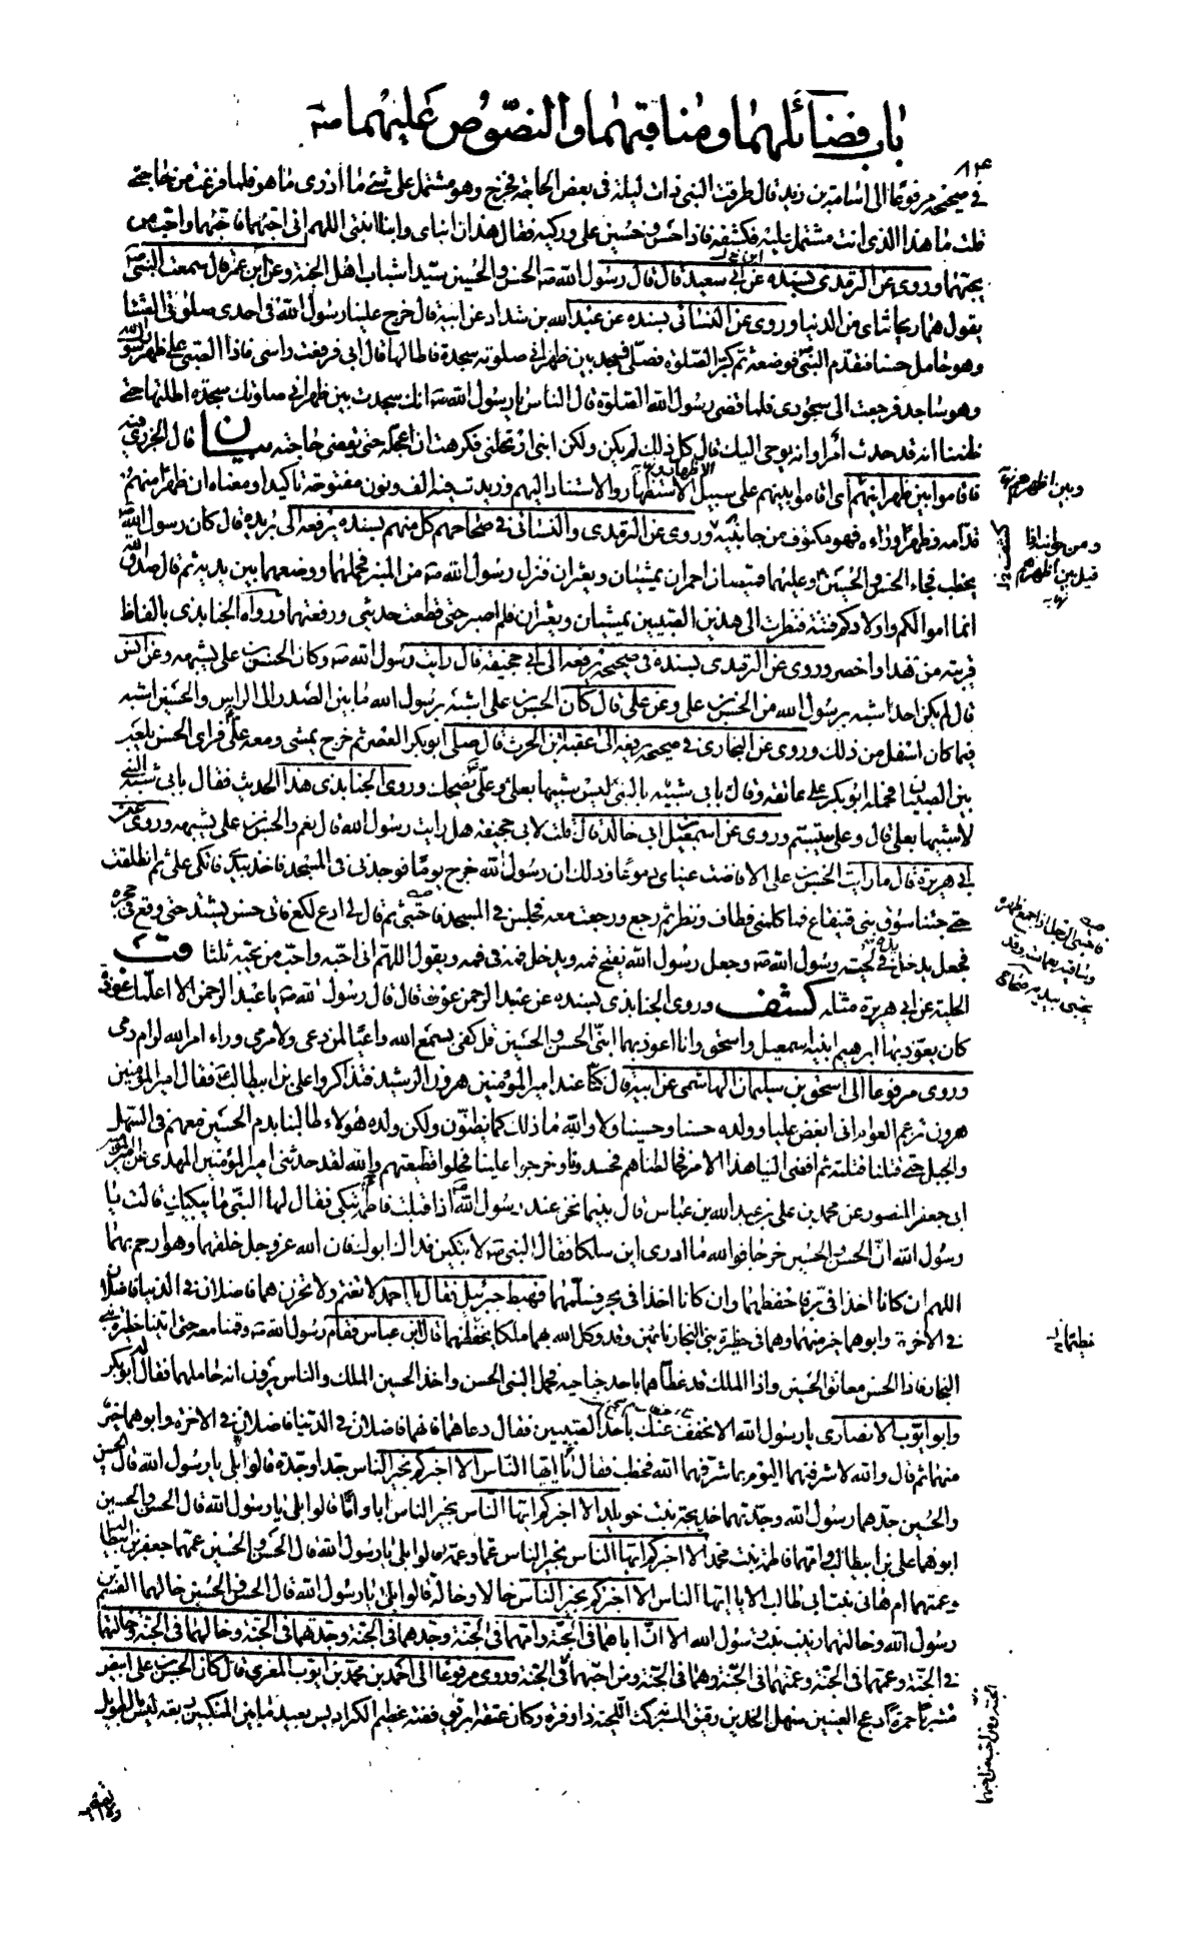 باب فضائلهما ومناقبهما والنصوص عليهما صه
٨٣
في صحيحه مرفوعا الى اسامة بن زيد قال طرقت النبي ذات ليلة في بعض الحاجة فخرج وهو مشتمل على شئ ما ادرى ما هو فلما فرغت من حاجتي
قلت ما هذا الذي انت مشتمل عليه فكشفه فاذا حسن وحسين على وركيه فقال هذان ابناى وابنا ابنتي اللهم اني احبهما فاحبهما واحب من
يحبهما وروى عن الترمذى بسنده عن ابي سعيد قال قال رسول الله صه الحسن والحسين سيدا شباب اهل الجنة وعن ابن عمر قال سمعت النبي ص
يقول هما ريحانتاى من الدنيا وروى عن النسائى بسنده عن عبد الله بن شداد عن ابيه قال خرج علينا رسول الله في احدى صلوتى العشا
وهو حامل حسنا فتقدم النبي فوضعه ثم كبر للصلوة فصلى فسجد بين ظهراني صلوته سجدة فاطالها قال ابي فرفعت راسى فاذا الصبي على ظهر رسول الله
وهو ساجد فرجعت الى سجودى فلما قضى رسول الله الصلوة قال الناس يا رسول الله صه انك سجدت بين ظهراني صلوتك سجدة اطلتها حتى
ظننا انه قد حدث امر او انه يوحى اليك قال كل ذلك لم يكن ولكن ابنى ارتحلنى فكرهت ان اعجله حتى يقضى حاجته بيان قال الجزرى فيه
فاقاموا بين ظهرانيهم اى اقاموا بينهم على سبيل الاستظهار والاستناد اليهم وزيدت فيه الف ونون مفتوحة تاكيدا ومعناه ان ظهرا منهم
قدامه وظهرا وراءه فهو مكنوف من جانبيه وروى عن الترمدى والنسائى في صحاحهم كل منهم بسنده يرفعه الى بريده قال كان رسول الله
يخطب فجاء الحسن والحسين وعليهما قميصان احمران يمشيان ويعثران فنزل رسول الله صه من المنبر فحملهما ووضعهما بين يديه ثم قال صدق الله
انما اموالكم واولادكم فتنة فنظرت الى هذين الصبيين يمشيان ويعثران فلم اصبر حتى قطعت حديثى ورفعتهما ورواه الجنابذى بالفاظ
قريبة من هذا واخصر وروى عن الترمدى بسنده في صحيحه يرفعه الى ابي جحيفة قال رايت رسول الله صه وكان الحسن بن على يشبهه وعن انس
قال لم يكن احدا شبه برسول الله من الحسن بن على وعن على قال كان الحسن بن على اشبه برسول الله ما بين الصدر الى الراس والحسين اشبه
فيما كان اسفل من ذلك وروى عن البخارى في صحيحه يرفعه الى عقبة ابن الحرث قال صلى ابو بكر العصر ثم خرج يمشى ومعه على فراى الحسن يلعب
بين الصبيان فحمله ابو بكر على عاتقه وقال بابي شبيه بالنبي ليس شبيها بعلى وعلى يضحك وروى الجنابذى هذا الحديث فقال بابي شبه النبي
لا شبيها بعلى قال وعلى يتبسم وروى عن اسمعيل ابي خالد قال قلت لابي جحيفة هل رايت رسول الله قال نعم والحسن بن على يشبهه وروى عن
ابي هريرة قال ما رايت الحسن بن على الا فاضت عيناى دموعا وذلك ان رسول الله خرج يوما فوجدنى في المسجد فاخذ بيدى فاتكى على ثم انطلقت
حتى جئنا سوق بني قينقاع فما كلمنى فطاف ونظر ثم رجع ورجعت معه فجلس في المسجد فاحتبى ثم قال لى ادع لكع فاتى حسن يشتد حتى وقع في حجره
فجعل يدخل يده في لحية رسول الله صه وجعل رسول الله يفتح فمه ويدخل فمه في فمه ويقول اللهم انى احبه واحب من يحبه ثلثا
الحلية عن ابي هريرة مثله كشف وروى الجنابذى بسنده عن عبد الرحمن بن عوف قال قال رسول الله صه يا عبد الرحمن الا اعلمك عوذة
كان يعوذ بها ابرهيم ابنيه اسمعيل واسحق وانا اعوذ بهما ابنى الحسن والحسين قل كفى بسمع الله واعيا لمن دعى ولا مرمى وراء امر الله لرام رمى
وروى مرفوعا الى اسحق بن سليمان الهاشمى عن ابيه قال كنا عند امير المؤمنين هرون الرشيد فتذاكروا على بن ابيطالب فقال امير المؤمنين
هرون تزعم العوام انى ابغض عليا وولده حسنا وحسينا ولا والله ما ذلك كما يظنون ولكن ولده هؤلاء طالبنا بدم الحسين معهم في السهل
والجبل حتى قتلنا قتلته ثم افضى الينا هذا الامر فخالطناهم فحسدونا وخرجوا علينا فحلوا قطيعتهم والله لقد حدثنى امير المؤمنين المهدى عن امير المؤمنين
ابي جعفر المنصور عن محمد بن على بن عبد الله بن عباس قال بينما نحن عند رسول الله اذا قبلت فاطمة تبكى فقال لها النبي ما يبكيك قالت يا
رسول الله ان الحسن والحسين خرجا فوالله ما ادرى اين سلكا فقال النبي صه لا تبكين فداك ابوك فان الله عز وجل خلقهما وهو ارحم بهما
اللهم ان كانا اخذا في بر فاحفظهما وان كانا اخذا في بحر فسلمهما فهبط جبرئيل فقال يا احمد لا تغتم ولا تحزن هما فاضلان في الدنيا فاضلان
في الاخرة وابوهما خير منهما وهما في حظيرة بنى النجار نائمين وقد وكل الله بهما ملكا يحفظهما قال ابن عباس فقام رسول الله صه وقمنا معه حتى اتينا حظيرة بني
النجار فاذا الحسن معانق الحسين واذا الملك قد غطاهما باحد جناحيه فحمل النبي الحسن واخذ الحسين الملك والناس يرون انه حاملهما فقال له ابو بكر
وابو ايوب الانصارى يا رسول الله الا نخفف عنك باحد الصبيين فقال دعاهما فانهما فاضلان في الدنيا فاضلان في الاخرة وابوهما خير
منهما ثم قال والله لاشرفنهما اليوم بما شرفهما الله فخطب فقال يا ايها الناس الا اخبركم بخير الناس جدا وجدة قالوا بلى يا رسول الله قال الحسن
والحسين جدهما رسول الله وجدتهما خديجة بنت خويلد الا اخبركم ايها الناس بخير الناس ابا واما قالوا بلى يا رسول الله قال الحسن والحسين
ابوهما على بن ابيطالب وامهما فاطمة بنت محمد الا اخبركم ايها الناس بخير الناس عما وعمة قالوا بلى يا رسول الله قال الحسن والحسين عمهما جعفر بن ابيطالب
وعمتهما ام هانى بنت ابي طالب الا يا ايها الناس الا اخبركم بخير الناس خالا وخالة قالوا بلى يا رسول الله قال الحسن والحسين خالهما القسم بن
رسول الله وخالتهما زينب بنت رسول الله الا ان اباهما في الجنة وامهما في الجنة وجدهما في الجنة وجدتهما في الجنة وخالهما في الجنة وخالتهما
في الجنة وعمهما في الجنة وعمتهما في الجنة وهما في الجنة ومن احبهما في الجنة وروى مرفوعا الى احمد بن محمد بن ايوب المغرى قال كان الحسن بن على ابيض
مشربا حمرة ادعج العينين سهل الخدين رقيق المسربة كث اللحية ذا وفرة وكان عنقه ابريق فضة عظيم الكراديس بعيد ما بين المنكبين ربعة ليس بالطويل
وبين اظهرهم
ومن جوانبه اذا
قيل بين اظهرهم